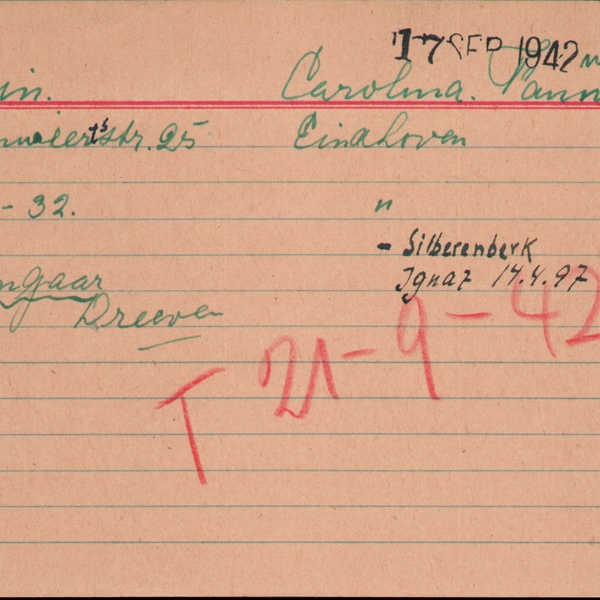 17 SEP 1942
in. Carolina.
str. 25 Eindhoven
- 32. "
- Silberenberk
Ignaz 14.4.97
ngaar
Dreeven
T 21-9-42